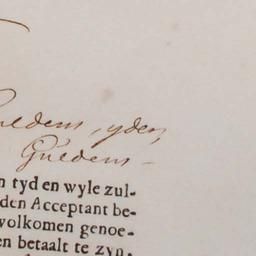 uldens, yder,
Guldens -
n tyd en wyle zul-
den Acceptant be-
volkomen genoe-
en betaalt te zyn.